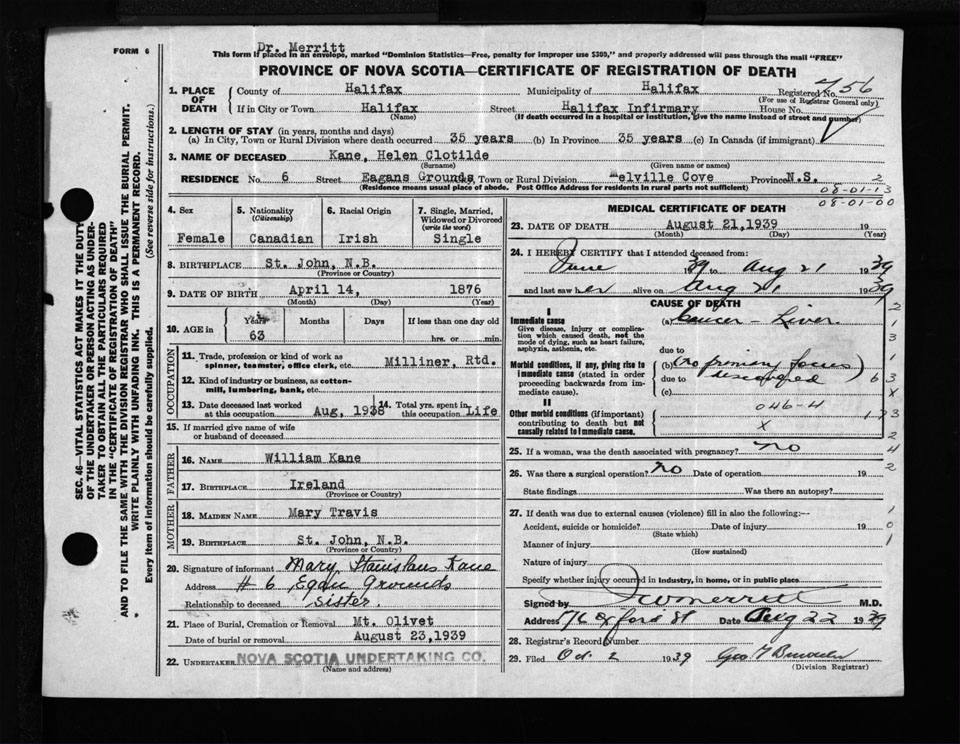 FORM 6
Dr. Merritt
This form if placed in an envelope, marked "Dominion Statistics—Free, penalty for improper use $300," and properly addressed will pass through the mail "FREE"
PROVINCE OF NOVA SCOTIA—CERTIFICATE OF REGISTRATION OF DEATH
1. PLACE OF DEATH
County of Halifax Municipality of Halifax Registered No. 756
(For use of Registrar General only)
If in City or Town Halifax Street Halifax Infirmary House No.
(Name) (If death occurred in a hospital or institution, give the name instead of street and number)
2. LENGTH OF STAY (in years, months and days)
(a) In City, Town or Rural Division where death occurred 35 years (b) In Province 35 years (c) In Canada (if immigrant)
3. NAME OF DECEASED Kane, Helen Clotilde
(Surname) (Given name or names)
RESIDENCE No. 6 Street Eagans Grounds, Town or Rural Division Melville Cove Province N.S. 2
(Residence means usual place of abode. Post Office Address for residents in rural parts not sufficient)
08-01-13
08-01-00
4. Sex Female
5. Nationality (Citizenship) Canadian
6. Racial Origin Irish
7. Single, Married, Widowed or Divorced (write the word) Single
8. BIRTHPLACE St. John, N.B.
(Province or Country)
9. DATE OF BIRTH April 14, 1876
(Month) (Day) (Year)
10. AGE in Years Months Days If less than one day old
63 hrs. or min.
OCCUPATION
11. Trade, profession or kind of work as spinner, teamster, office clerk, etc. Milliner, Rtd.
12. Kind of industry or business, as cotton-mill, lumbering, bank, etc.
13. Date deceased last worked at this occupation Aug, 1938
14. Total yrs. spent in this occupation Life
15. If married give name of wife or husband of deceased
FATHER
16. NAME William Kane
17. BIRTHPLACE Ireland
(Province or Country)
MOTHER
18. MAIDEN NAME Mary Travis
19. BIRTHPLACE St. John, N.B.
(Province or Country)
20. Signature of informant Mary Stanislaus Kane
Address #6 Egan Grounds
Relationship to deceased Sister.
21. Place of Burial, Cremation or Removal Mt. Olivet
Date of burial or removal August 23, 1939
22. UNDERTAKER NOVA SCOTIA UNDERTAKING CO.
(Name and address)
MEDICAL CERTIFICATE OF DEATH
23. DATE OF DEATH August 21, 1939 19
(Month) (Day) (Year)
24. I HEREBY CERTIFY that I attended deceased from:
June 1939 to Aug 21 1939
and last saw her alive on Aug 21 1939
CAUSE OF DEATH
I
Immediate cause (a) Cancer - Liver
Give disease, injury or complication which caused death, not the mode of dying, such as heart failure, asphyxia, asthenia, etc.
due to
Morbid conditions, if any, giving rise to immediate cause (stated in order proceeding backwards from immediate cause).
(b) (no primary focus
due to discovered)
(c)
II
Other morbid conditions (if important) contributing to death but not causally related to immediate cause.
046-4
X
25. If a woman, was the death associated with pregnancy? no
26. Was there a surgical operation? no Date of operation 19
State findings Was there an autopsy?
27. If death was due to external causes (violence) fill in also the following:—
Accident, suicide or homicide? Date of injury 19
(State which)
Manner of injury
(How sustained)
Nature of injury
Specify whether injury occurred in industry, in home, or in public place
Signed by Merritt M.D.
Address 176 Oxford St Date Aug 22 1939
28. Registrar's Record Number
29. Filed Oct. 2 1939 Geo
(Division Registrar)
SEC. 46—VITAL STATISTICS ACT MAKES IT THE DUTY
OF THE UNDERTAKER OR PERSON ACTING AS UNDER-
TAKER TO OBTAIN ALL THE PARTICULARS REQUIRED
IN THE "CERTIFICATE OF REGISTRATION OF DEATH"
AND TO FILE THE SAME WITH THE DIVISION REGISTRAR WHO SHALL ISSUE THE BURIAL PERMIT.
WRITE PLAINLY WITH UNFADING INK. THIS IS A PERMANENT RECORD.
Every item of information should be carefully supplied. (See reverse side for instructions.)